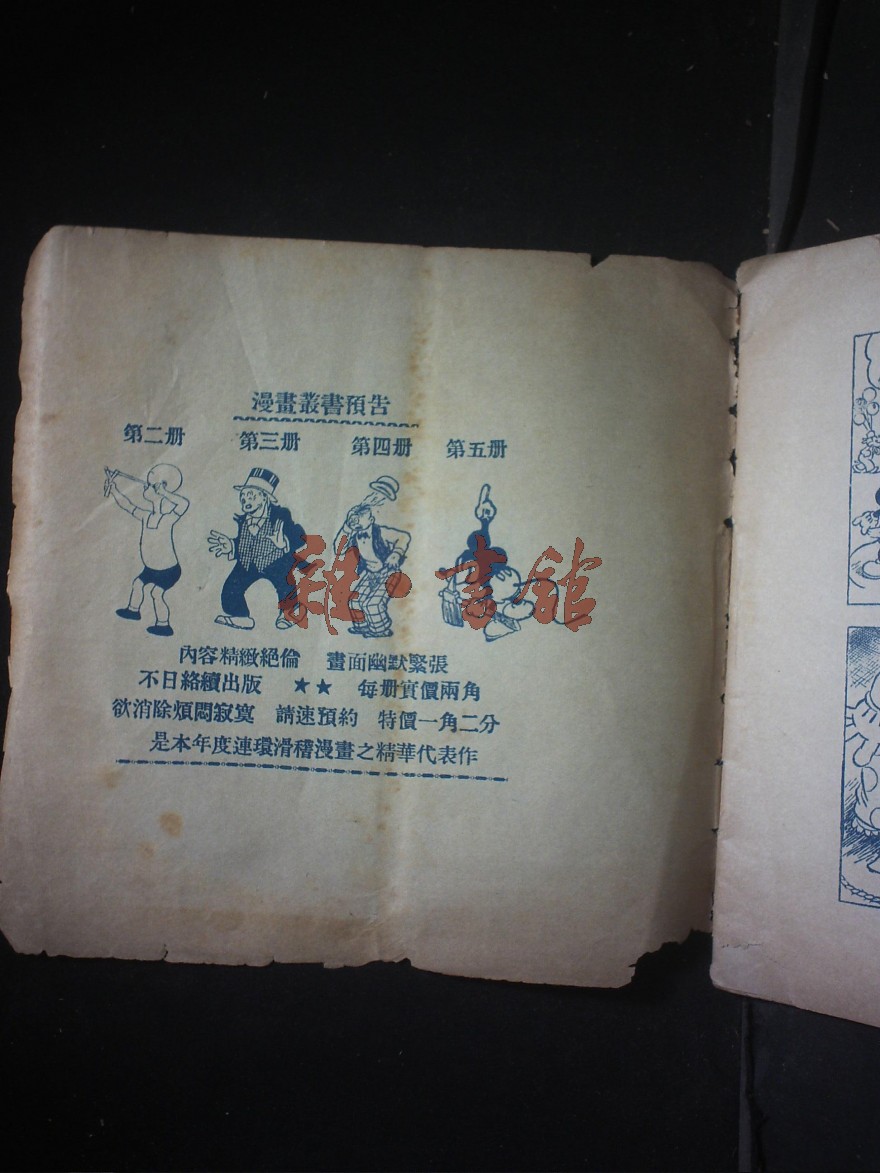 漫畫叢書預告
第二册 第三册 第四册 第五册
雜·書館
內容精緻絕倫 畫面幽默緊張
不日絡續出版 ★★ 每册實價兩角
欲消除煩悶寂寞 請速預約 特價一角二分
是本年度連環滑稽漫畫之精華代表作